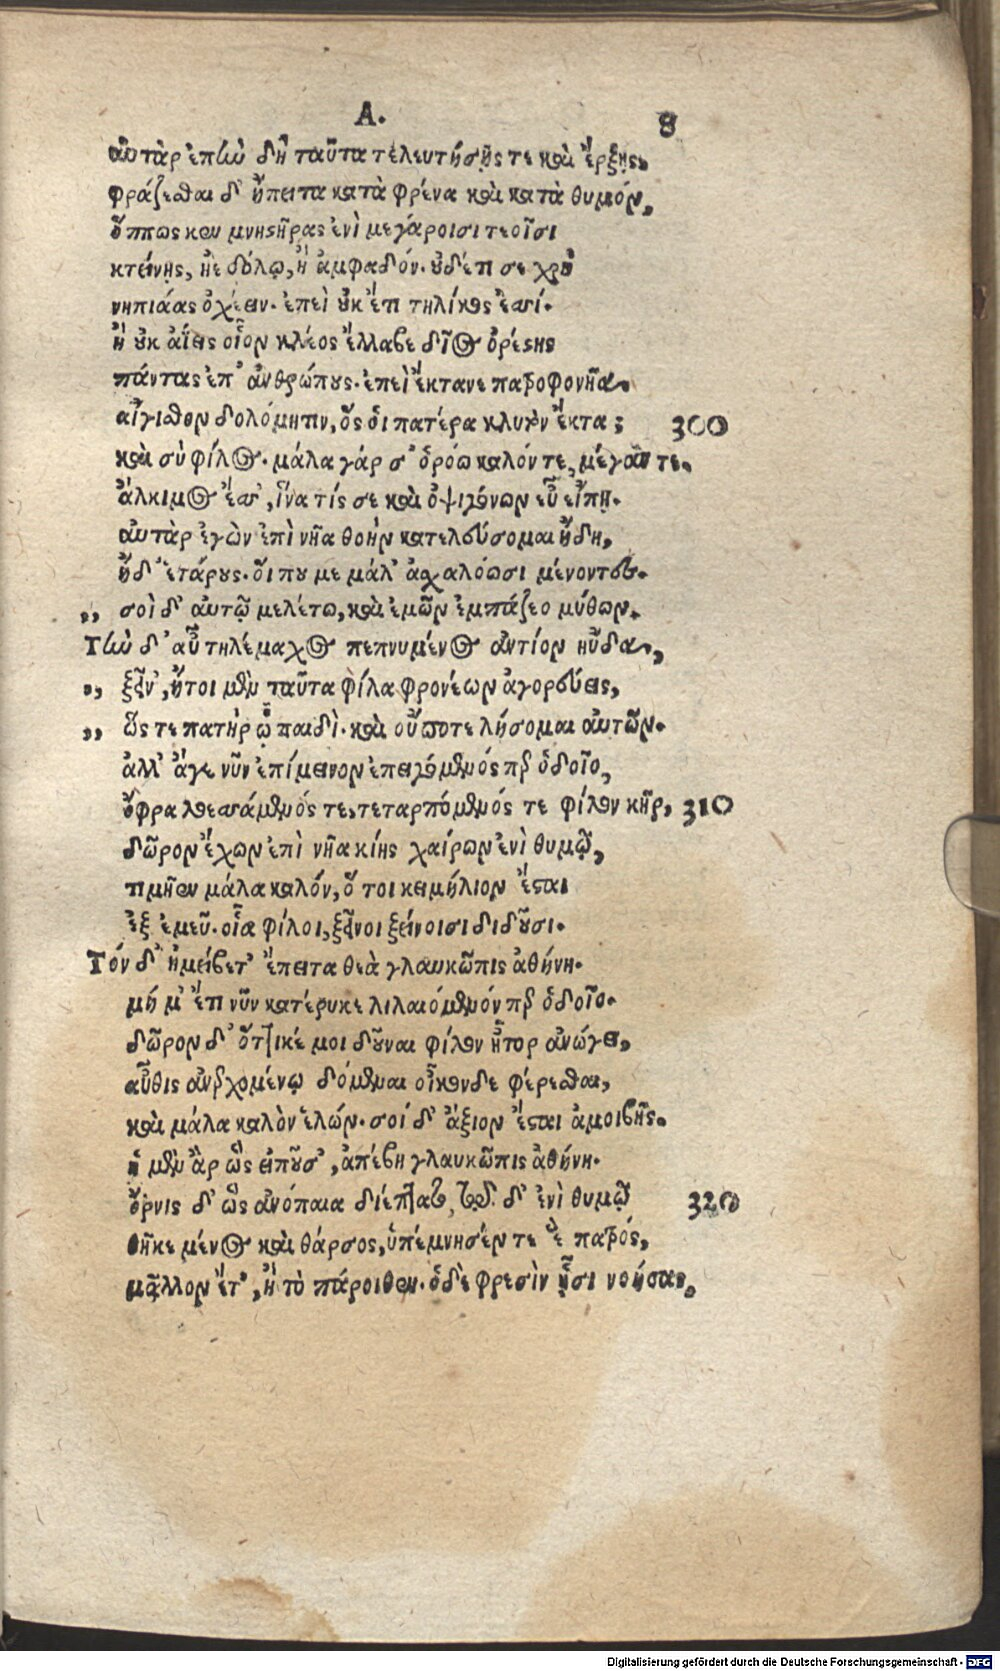 Α. 8
αὐτὰρ ἐπὴν δὴ ταῦτα τελευτήσῃς τε καὶ ἔρξῃς,
φράζεσθαι δ' ἤπειτα κατὰ φρένα καὶ κατὰ θυμόν,
ὅππως κεν μνηστῆρας ἐνὶ μεγάροισι τεοῖσι
κτείνῃς, ἠὲ δόλῳ, ἢ ἀμφαδόν· οὐδέ τι σε χρὴ
νηπιάας ὀχέειν· ἐπεὶ οὐκ ἔτι τηλίκος ἐσσί·
ἢ οὐκ ἀΐεις οἷον κλέος ἔλλαβε δῖος ὀρέστης
πάντας ἐπ' ἀνθρώπους· ἐπεὶ ἔκτανε πατροφονῆα
αἴγισθον δολόμητιν, ὅς οἱ πατέρα κλυτὸν ἔκτα; 300
καὶ σὺ φίλος· μάλα γάρ σ' ὁρόω καλόν τε, μέγαν τε.
ἄλκιμος ἔσσ', ἵνα τίς σε καὶ ὀψιγόνων εὖ εἴπῃ.
αὐτὰρ ἐγὼν ἐπὶ νῆα θοὴν κατελεύσομαι ἤδη,
ἠδ' ἑτάρους· οἵ που με μάλ' ἀσχαλόωσι μένοντες.
„ σοὶ δ' αὐτῷ μελέτω, καὶ ἐμῶν ἐμπάζεο μύθων.
Τὴν δ' αὖ τηλέμαχος πεπνυμένος ἀντίον ηὔδα,
„ ξεῖν', ἤτοι μὲν ταῦτα φίλα φρονέων ἀγορεύεις,
„ ὥς τε πατὴρ ᾧ παιδὶ· καὶ οὔποτε λήσομαι αὐτῶν.
ἀλλ' ἄγε νῦν ἐπίμεινον ἐπειγόμενός περ ὁδοῖο,
ὄφρα λοεσσάμενός τε, τεταρπόμενός τε φίλον κῆρ, 310
δῶρον ἔχων ἐπὶ νῆα κίῃς χαίρων ἐνὶ θυμῷ,
τιμῆεν μάλα καλόν, ὅ τοι κειμήλιον ἔσται
ἐξ ἐμεῦ· οἷα φίλοι, ξεῖνοι ξείνοισι διδοῦσι.
Τόν δ' ἠμείβετ' ἔπειτα θεὰ γλαυκῶπις ἀθήνη.
μή μ' ἔτι νῦν κατέρυκε λιλαιόμενόν περ ὁδοῖο.
δῶρον δ' ὅττι κέ μοι δοῦναι φίλον ἦτορ ἀνώγει,
αὖθις ἀνερχομένῳ δόμεναι οἶκόνδε φέρεσθαι,
καὶ μάλα καλὸν ἑλών· σοί δ' ἄξιον ἔσται ἀμοιβῆς.
ἡ μὲν ἂρ ὣς εἰποῦσ', ἀπέβη γλαυκῶπις ἀθήνη.
ὄρνις δ' ὣς ἀνόπαια διέπτατο, τῷ δ' ἐνὶ θυμῷ 320
θῆκε μένος καὶ θάρσος, ὑπέμνησέν τε ἑ πατρός,
μᾶλλον ἔτ', ἢ τὸ πάροιθεν· ὁ δὲ φρεσὶν ᾗσι νοήσας,
Digitalisierung gefördert durch die Deutsche Forschungsgemeinschaft - DFG